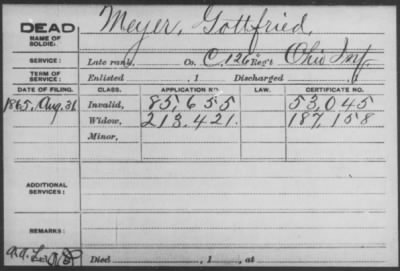 DEAD Meyer, Gottfried,
NAME OF
SOLDIE.
SERVICE: Late rank, Co. C, 126" Reg't Ohio Inf.
TERM OF
SERVICE: Enlisted , 1 Discharged , 1
DATE OF FILING. CLASS. APPLICATION NO. LAW. CERTIFICATE NO.
1865, Aug. 31 Invalid, 85,655 53,045
Widow, 213,421. 187,158
Minor,
ADDITIONAL
SERVICES:
REMARKS:
Died , 1 , at